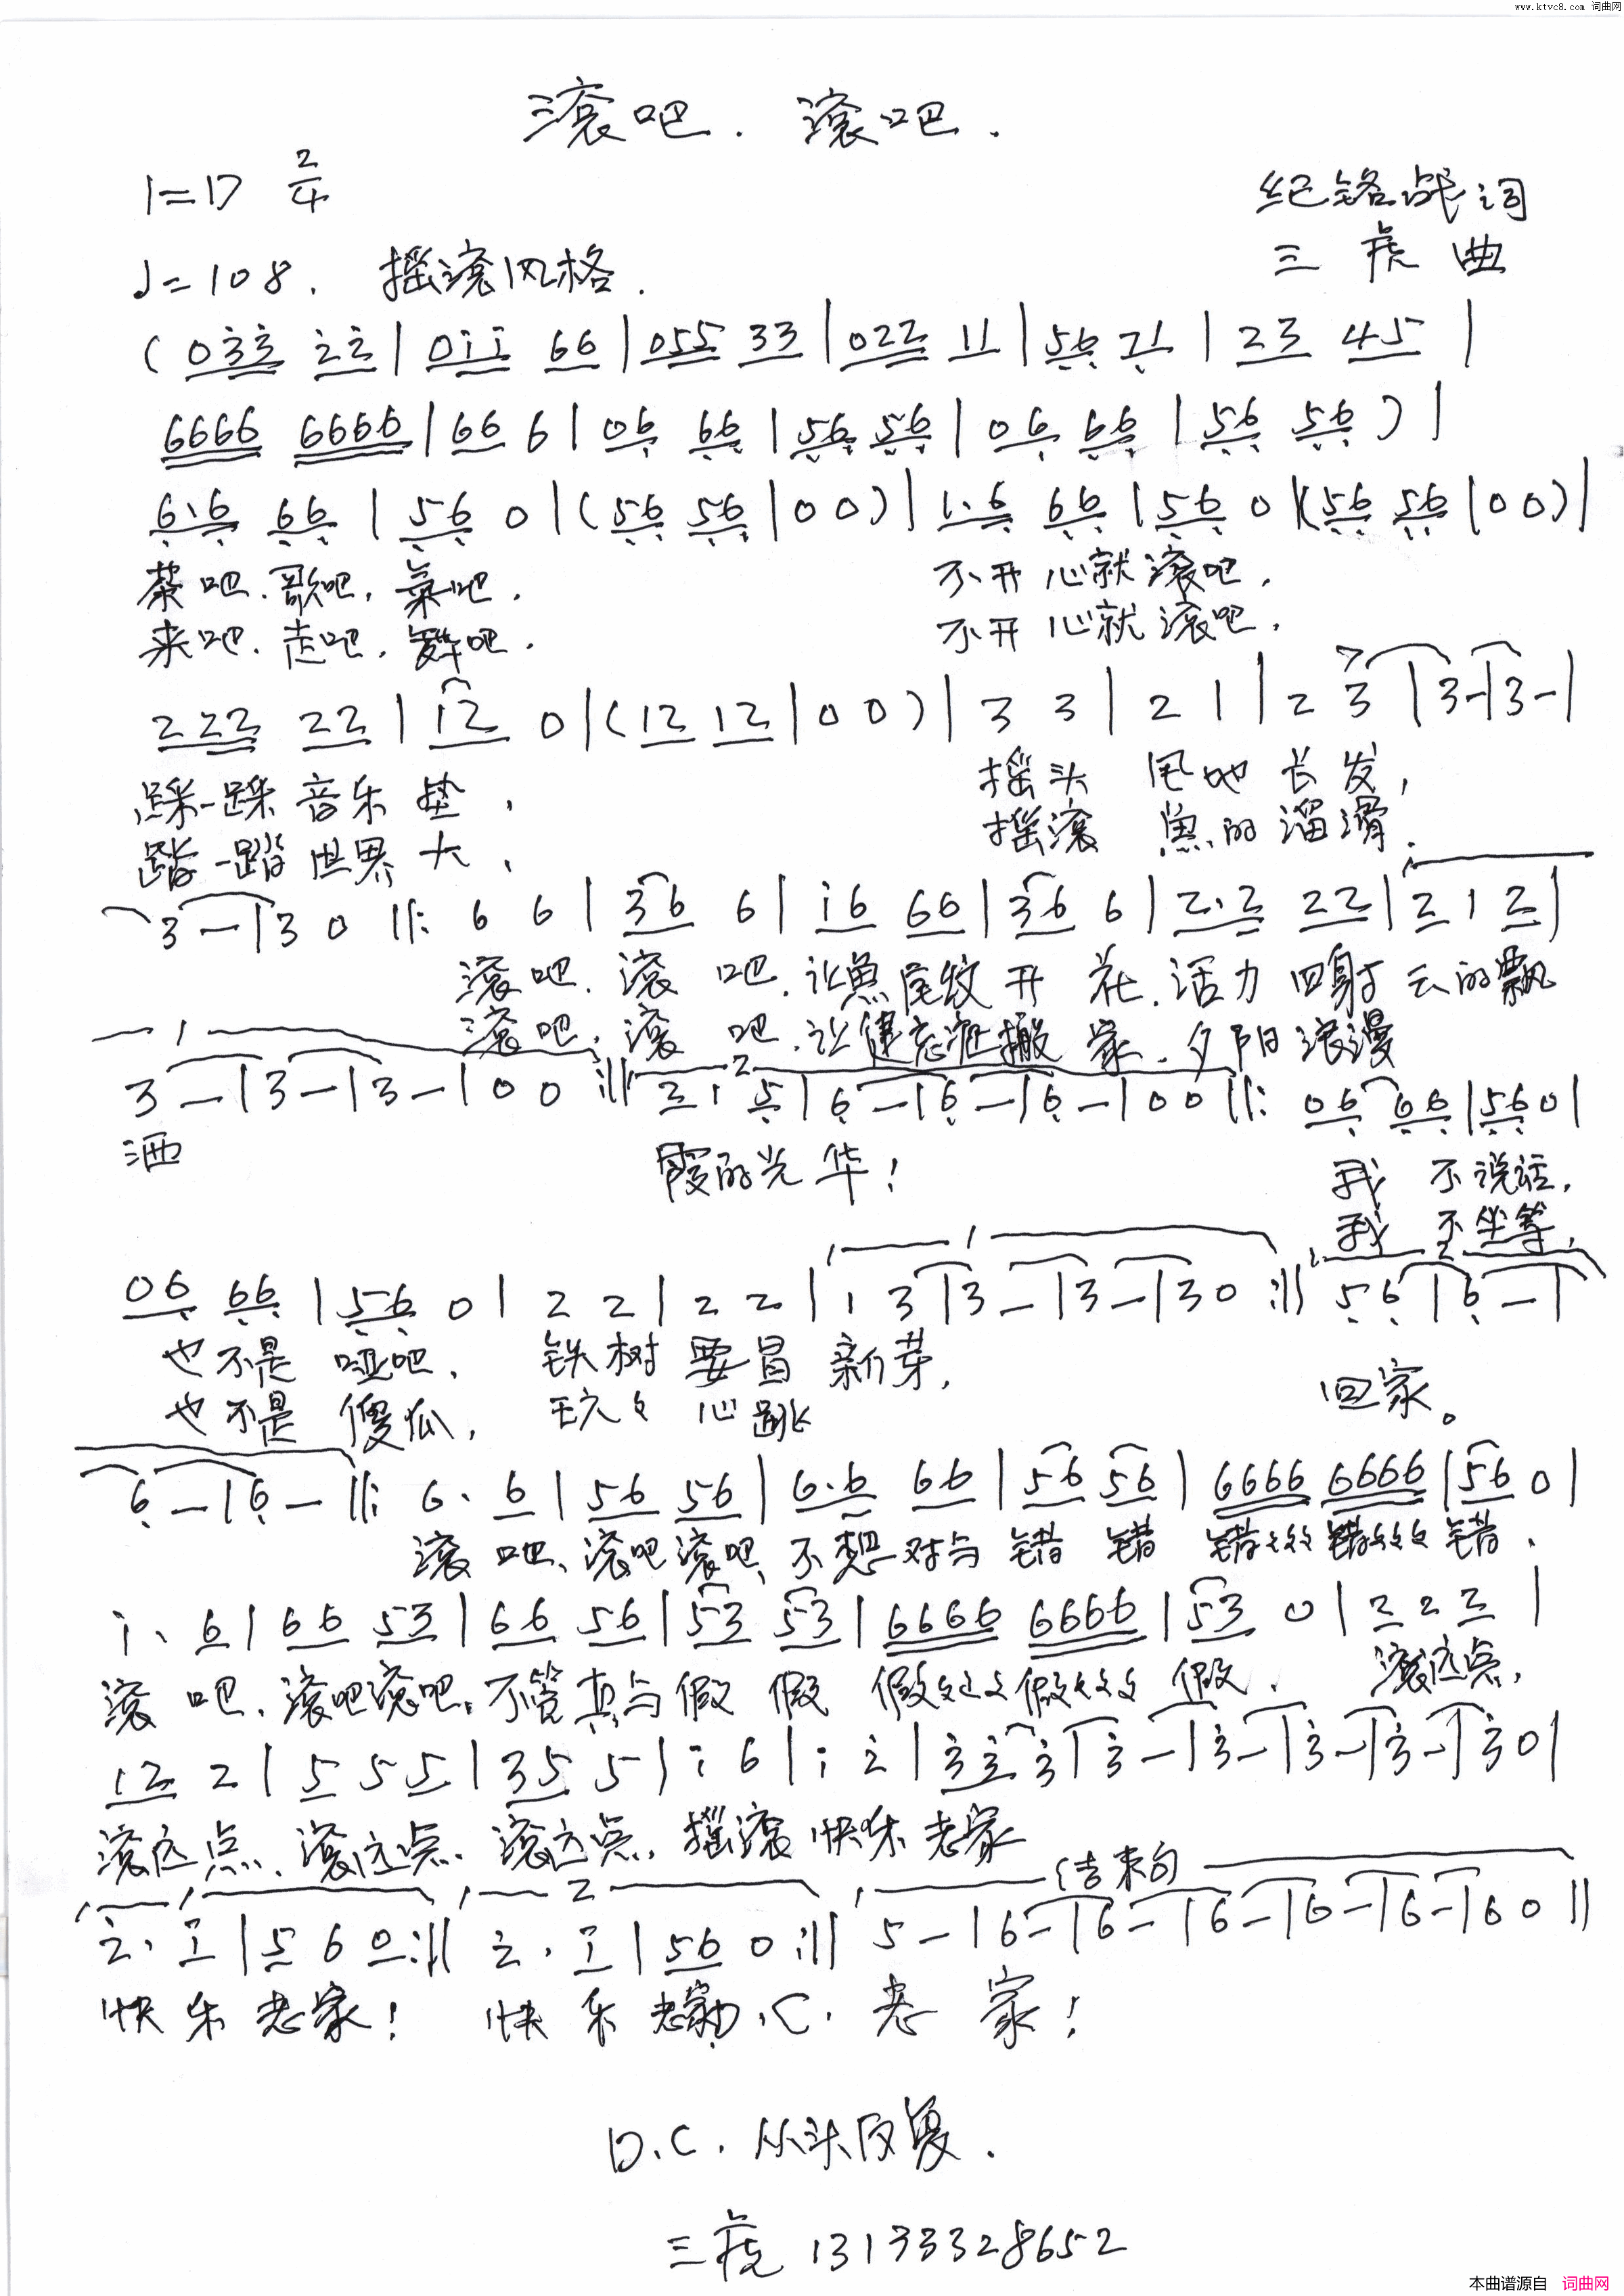 www.ktvc8.com 词曲网
滚吧．滚吧．
1=D 2/4
纪铭战词
♩=108． 摇滚风格．
三虎曲
(0 3̇3̇ 2̇2̇ | 0 1̇1̇ 66 | 055 33 | 022 11 | 56 71 | 23 45 |
6666 6666 | 66 6 | 06 66 | 56 56 | 06 66 | 56 56 ) |
6·6 66 | 56 0 | (56 56 | 0 0) | 1·6 66 | 56 0 | (56 56 | 0 0) |
茶吧、歌吧，氣吧， 不开心就滚吧，
来吧、走吧，舞吧． 不开心就滚吧，
2 22 22 | 12 0 | (12 12 | 0 0) | 3 3 | 2 1 | 2 3 | 3 - | 3 - |
踩一踩音乐垫， 摇头 甩地长发，
踏一踏世界大、 摇滚 魚的溜滑．
3 - | 3 0 ||: 6 6 | 36 6 | 1̇6 66 | 36 6 | 2·2 22 | 2 1 2 |
滚吧．滚吧．让魚尾纹开花．活力四射云的飘
滚吧．滚吧．让健忘症搬家．夕阳浪漫
1
2
3 - | 3 - | 3 - | 0 0 :|| 2 1 5 | 6 - | 6 - | 6 - | 0 0 ||: 06 66 | 56 0 |
洒 霞的光华！ 我不说话，
我不坐等，
1
2
06 66 | 56 0 | 2 2 | 2 2 | 1 3 | 3 - | 3 - | 3 0 :|| 5 6 | 6 - |
也不是哑吧． 铁树要冒新芽， 回家。
也不是傻瓜， 玩々心跳
6 - | 6 - ||: 6· 6 | 56 56 | 6·6 66 | 56 56 | 6666 6666 | 56 0 |
滚吧、滚吧滚吧、不想对与错 错 错々々々错々々々错．
1̇· 6 | 66 53 | 66 56 | 53 53 | 6666 6666 | 53 0 | 2 2 2 |
滚吧．滚吧滚吧．不管真与假 假 假々々々假々々々假． 滚远点，
12 2 | 5 5 5 | 35 5 | 1̇ 6 | 1̇ 2̇ | 3̇ 3̇ 3̇ | 3̇ - | 3̇ - | 3̇ - | 3̇ - | 3̇ 0 |
滚远点、滚远点．滚远点．摇滚快乐老家
1 2 结束句
2̇· 1̇ | 5 6 0 :|| 2̇· 1̇ | 56 0 :|| 5 - | 6 - | 6 - | 6 - | 6 - | 6 - | 6 0 ||
快乐老家！ 快乐老家D.C. 老家！
D.C. 从头反复．
三虎 13193328652
本曲谱源自 词曲网